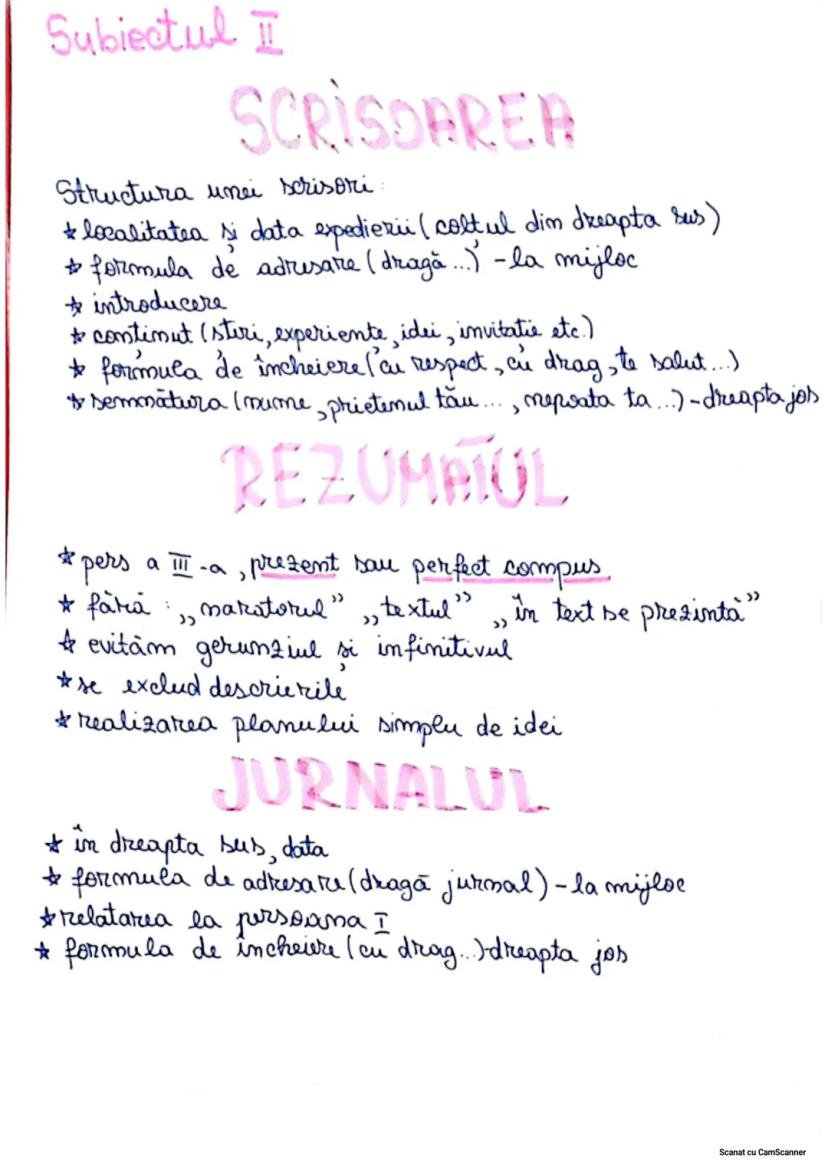 Subiectul II
SCRISOAREA
Structura unei scrisori:
* localitatea și data expedierii (colțul din dreapta sus)
* formula de adresare (dragă...) - la mijloc
* introducere
* conținut (știri, experiențe, idei, invitație etc.)
* formula de încheiere (cu respect, cu drag, te salut...)
* semnătura (nume, prietenul tău..., nepoata ta...) - dreapta jos
REZUMATUL
* pers a III-a, prezent sau perfect compus
* fără : „naratorul” „textul” „în text se prezintă”
* evităm gerunziul și infinitivul
* se exclud descrierile
* realizarea planului simplu de idei
JURNALUL
* în dreapta sus, data
* formula de adresare (dragă jurnal) - la mijloc
* relatarea la persoana I
* formula de încheiere (cu drag...) - dreapta jos
Scanat cu CamScanner